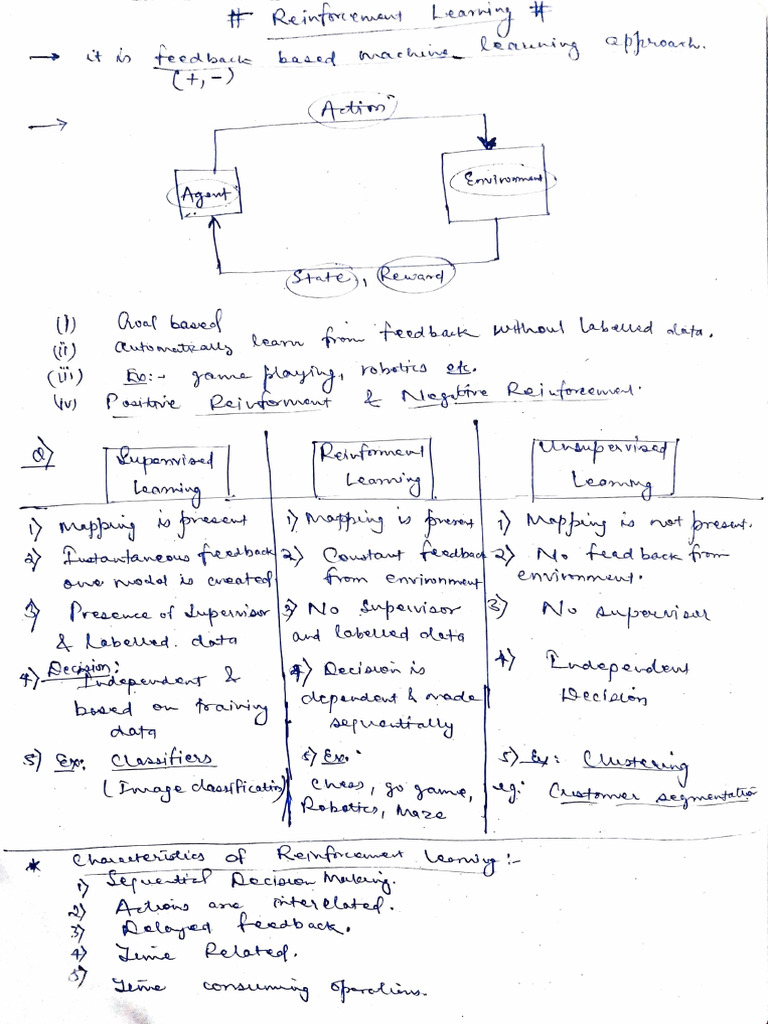 # Reinforcement Learning #
→ it is feedback based machine learning approach.
(+, -)
→
Action
Agent
Environment
State, Reward
(i) Goal based
(ii) automatically learn from feedback without labelled data.
(iii) Ex:- game playing, robotics etc.
(iv) Positive Reinforment & Negative Reinforcement.
Q)
Supervised Learning
1) Mapping is present
2) Instantaneous feedback
one model is created
3) Presence of Supervisor
& Labelled data
4) Decision:
Independent &
based on training
data
5) Ex: Classifiers
(Image classification)
Reinforment Learning
1) Mapping is present
2) Constant feedback
from environment
3) No Supervisor
and labelled data
4) Decision is
dependent & made
sequentially
5) Ex:
Chess, go game,
Robotics, Maze
Unsupervised Learning
1) Mapping is not present.
2) No feedback from
environment.
3) No supervisor
4) Independent
Decision
5) Ex: Clustering
eg: Customer segmentation
* Characteristics of Reinforcement Learning:-
1) Sequential Decision Making.
2) Actions are interelated.
3) Delayed feedback.
4) Time Related.
5) Time consuming operations.